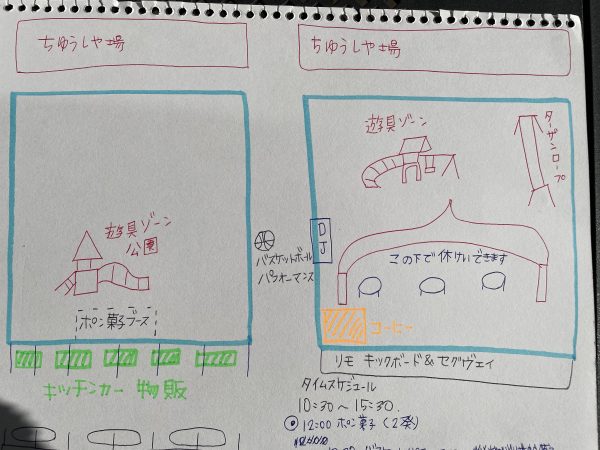 ちゅうしゃ場
ちゅうしゃ場
遊具ゾーン
ターザンロープ
遊具ゾーン
公園
DJ
バスケットボール
パフォーマンス
この下で休けいできます
ポン菓子ブース
コーヒー
キッチンカー 物販
リモ キックボード&セグヴェイ
タイムスケジュール
10:30〜15:30
12:00 ポン菓子(2発)